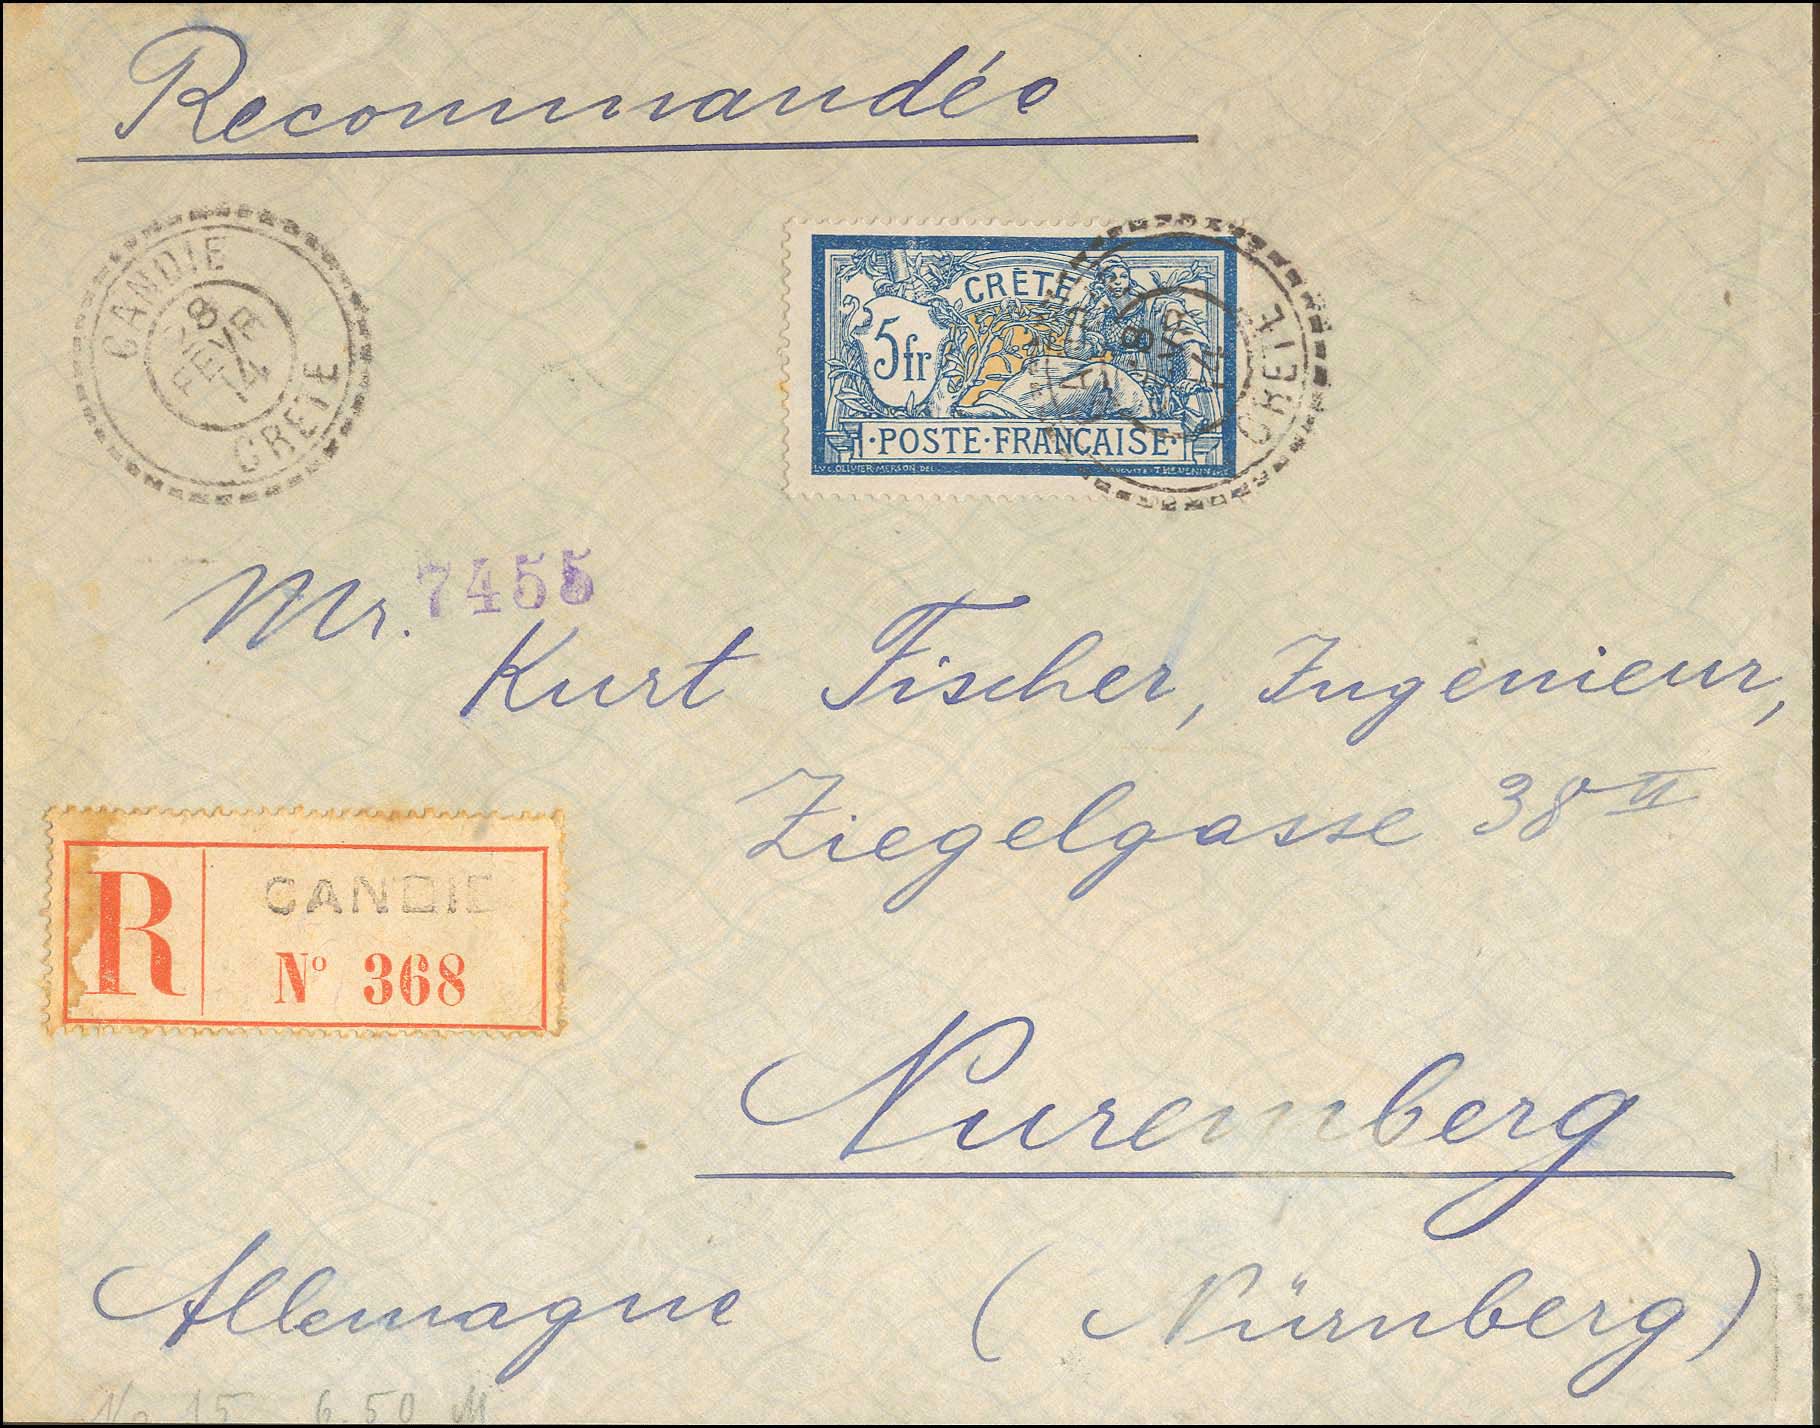 Recommandée
CANDIE
28
FEVR
14
CRETE
CRÈTE
5fr
·POSTE·FRANÇAISE·
LUC. OLIVIER-MERSON. DEL.
CRETE
7455
Mr.
Kurt Fischer, Ingenieur,
Ziegelgasse 38 II
R
CANDIE
No 368
Nuremberg
Allemagne (Nürnberg)
15 6.50 M